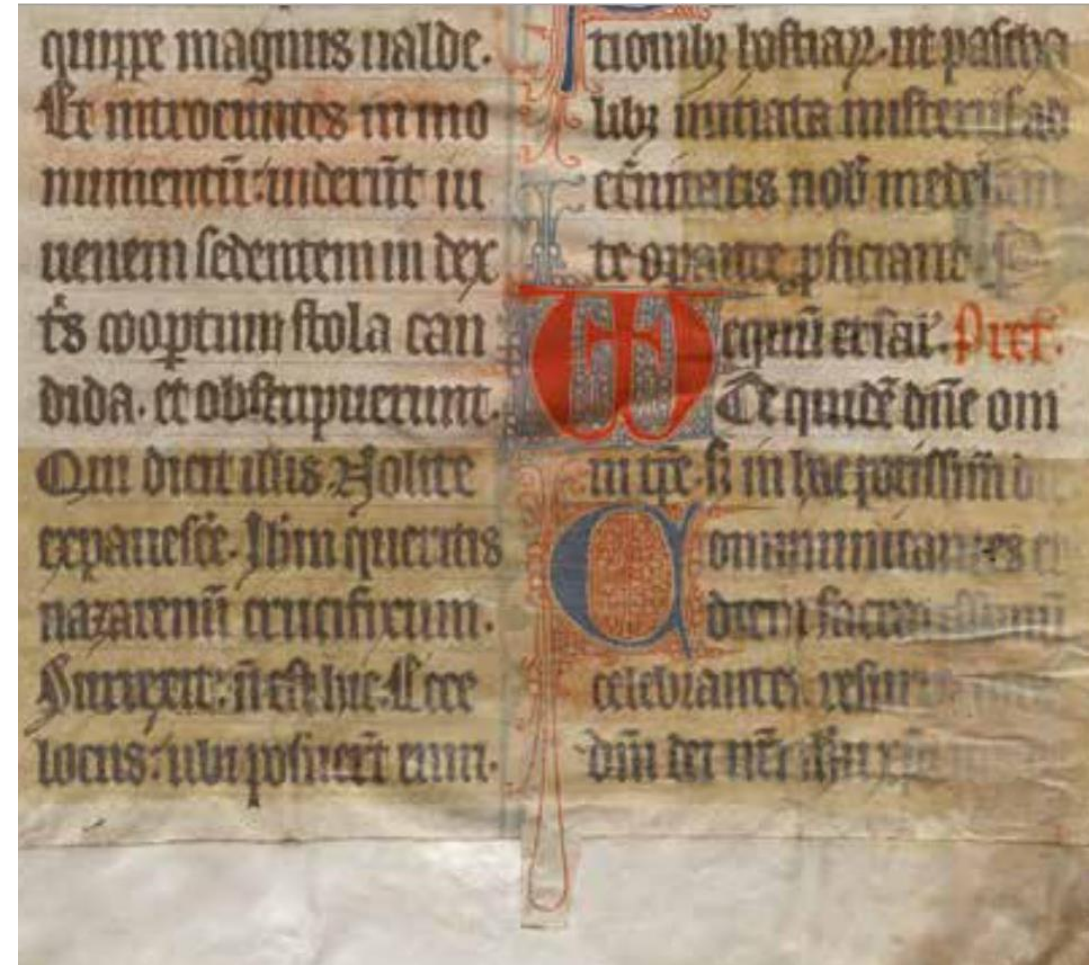 quippe magnus ualde.
Et introeuntes in mo
numentū: uiderūt iu
uenem sedentem in dex
tis coopertum stola can
dida. et obstupuerunt.
Qui dicit illis. Nolite
expauescē. Ihm queritis
nazarenū crucifixum.
Surrexit: nō est hic. Ecce
locus: ubi posuerūt eum.
tionibꝫ hostiaꝝ. ut pascha
libꝫ initiata misteriis ad
eternitatis nob medelam
te opante pficiant
equū et sal. Pref.
Te quidē dn̄e om
ni tp̄e. sꝫ in hac potissimū d
Communicantes et
diem sacra
celebrantes. resur
dn̄i dei nr̄i ihu xp̄i